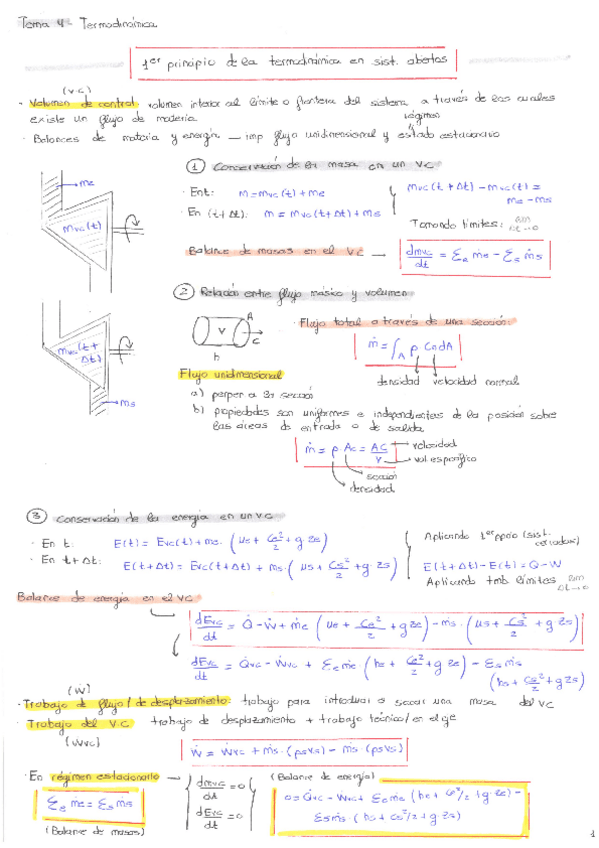 Tema 4 - Termodinámica
1er principio de la termodinámica en sist. abiertos
(VC)
· Volumen de control: volumen interior al límite o frontera del sistema a través de los cuales
existe un flujo de materia.
régimen
· Balances de materia y energía — imp flujo unidimensional y estado estacionario
① Conservación de la masa en un VC
me
mvc(t)
· Ent: m = mvc(t) + me
· En (t+Δt): m = mvc(t+Δt) + ms
mvc(t+Δt) - mvc(t) =
me - ms
Tomando límites: lim Δt→0
Balance de masas en el VC → dmvc/dt = Σe ṁe - Σs ṁs
② Relación entre flujo másico y volumen
mvc(t+Δt)
ms
A
V
C
h
· Flujo total a través de una sección:
ṁ = ∫A ρ Cn dA
densidad velocidad normal
Flujo unidimensional
a) perper a la sección
b) propiedades son uniformes e independientes de la posición sobre
las áreas de entrada o de salida
ṁ = ρ · AC = AC/v
velocidad
vol específico
sección
densidad
③ Conservación de la energía en un VC
· En t: E(t) = Evc(t) + me · (ue + Ce²/2 + g·ze)
· En t+Δt: E(t+Δt) = Evc(t+Δt) + ms · (us + Cs²/2 + g·zs)
Aplicando 1er ppio (sist. cerrados)
E(t+Δt) - E(t) = Q - W
Aplicando tmb límites lim Δt→0
Balance de energía en el VC
dEvc/dt = Q̇ - Ẇ + ṁe (ue + Ce²/2 + g ze) - ṁs · (us + Cs²/2 + g zs)
dEvc/dt = Q̇vc - Ẇvc + Σe ṁe · (he + Ce²/2 + g ze) - Σs ṁs
(hs + Cs²/2 + g zs)
(Ẇ)
· Trabajo de flujo / de desplazamiento: trabajo para introducir o sacar una masa del VC
· Trabajo del VC trabajo de desplazamiento + trabajo técnico/en el eje
(Ẇvc)
Ẇ = Ẇvc + ṁs · (ps vs) - ṁs · (ps vs)
· En régimen estacionario
dmvc/dt = 0
dEvc/dt = 0
Σe ṁe = Σs ṁs
(Balance de masas)
(Balance de energía)
0 = Q̇vc - Ẇvc + Σe ṁe (he + Ce²/2 + g ze) -
Σs ṁs · (hs + Cs²/2 + g zs)
1